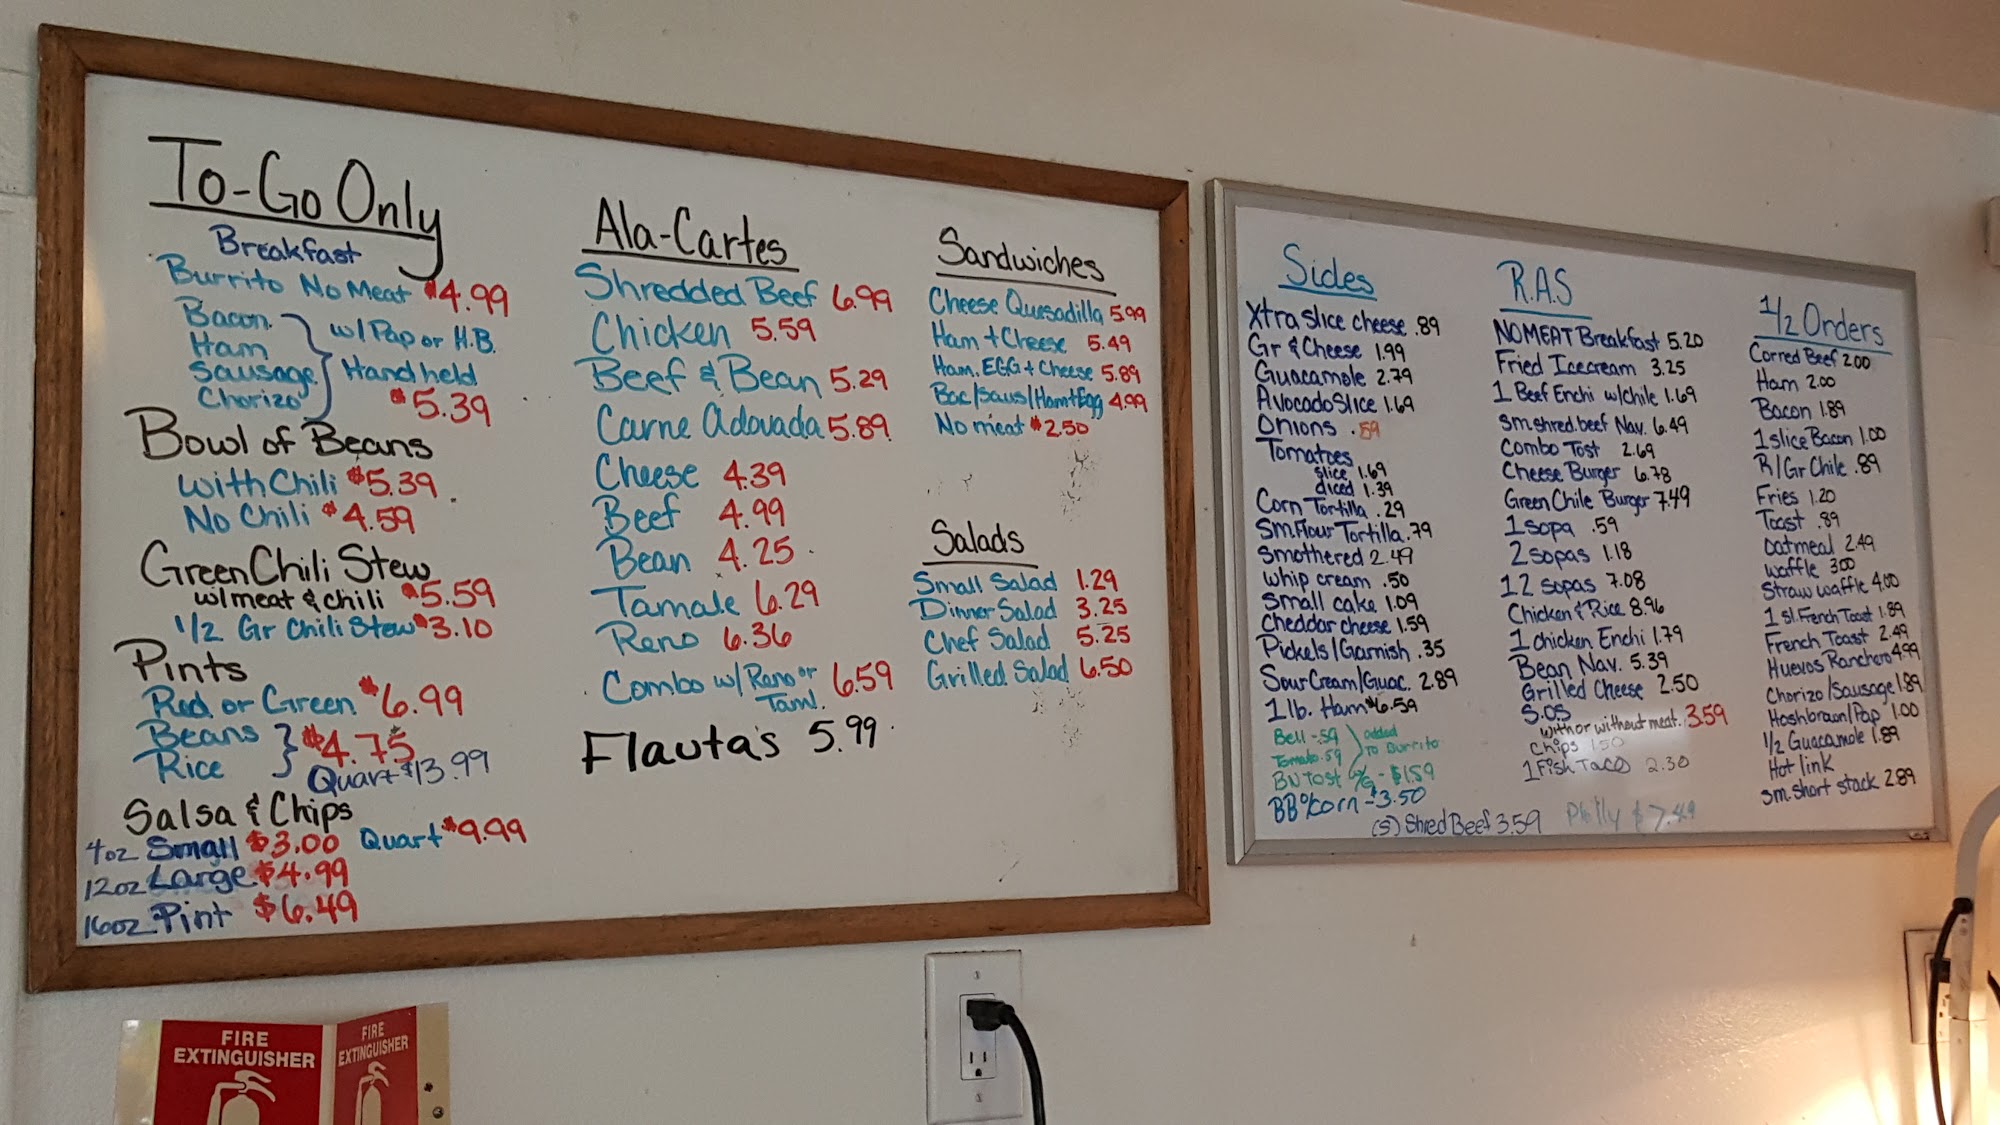 To-Go Only
Breakfast
Burrito No Meat $4.99
Bacon
Ham
Sausage
Chorizo
w/ Pap or H.B.
Hand held
$5.39
Bowl of Beans
With Chili $5.39
No Chili $4.59
Green Chili Stew
w/meat & chili $5.59
1/2 Gr Chili Stew $3.10
Pints
Red or Green $6.99
Beans
Rice
$4.75
Quart $13.99
Salsa & Chips
4oz Small $3.00 Quart $9.99
12oz Large $4.99
16oz Pint $6.49
Ala-Cartes
Shredded Beef 6.99
Chicken 5.59
Beef & Bean 5.29
Carne Adovada 5.89
Cheese 4.39
Beef 4.99
Bean 4.25
Tamale 6.29
Reno 6.36
Combo w/ Reno or Tam. 6.59
Flauta's 5.99
Sandwiches
Cheese Quesadilla 5.99
Ham + Cheese 5.49
Ham. EGG + Cheese 5.89
Bac/Saus/Ham+Egg 4.99
No meat $2.50
Salads
Small Salad 1.29
Dinner Salad 3.25
Chef Salad 5.25
Grilled Salad 6.50
Sides
Xtra slice cheese .89
Gr & Cheese 1.99
Guacamole 2.79
Avocado Slice 1.69
Onions .59
Tomatoes
slice 1.69
diced 1.39
Corn Tortilla .29
Sm. Flour Tortilla .79
Smothered 2.49
Whip cream .50
Small cake 1.09
Cheddar cheese 1.59
Pickels/Garnish .35
Sour Cream/Guac. 2.89
1 lb. Ham $6.59
Bell - .59
Tomato .59
added
To Burrito
BN Tost - $1.59
BB % corn - $3.50
(S) Shred Beef 3.59
Philly $7.49
R.A.S
NO MEAT Breakfast 5.20
Fried Icecream 3.25
1 Beef Enchi w/chile 1.69
sm. shred. beef Nav. 6.49
Combo Tost 2.69
Cheese Burger 6.78
Green Chile Burger 7.49
1 sopa .59
2 sopas 1.18
12 sopas 7.08
Chicken & Rice 8.96
1 chicken Enchi 1.79
Bean Nav. 5.39
Grilled Cheese 2.50
S.O.S
with or without meat. 3.59
Chips 1.50
1 Fish Taco 2.30
1/2 Orders
Corred Beef 2.00
Ham 2.00
Bacon 1.89
1 slice Bacon 1.00
R/Gr Chile .89
Fries 1.20
Toast .89
Oatmeal 2.49
Waffle 3.00
Straw waffle 4.00
1 sl. French Toast 1.89
French Toast 2.49
Huevos Ranchero 4.99
Chorizo/Sausage 1.89
Hashbrown/Pap 1.00
1/2 Guacamole 1.89
Hot link
sm. short stack 2.89
FIRE
EXTINGUISHER
FIRE
EXTINGUISHER